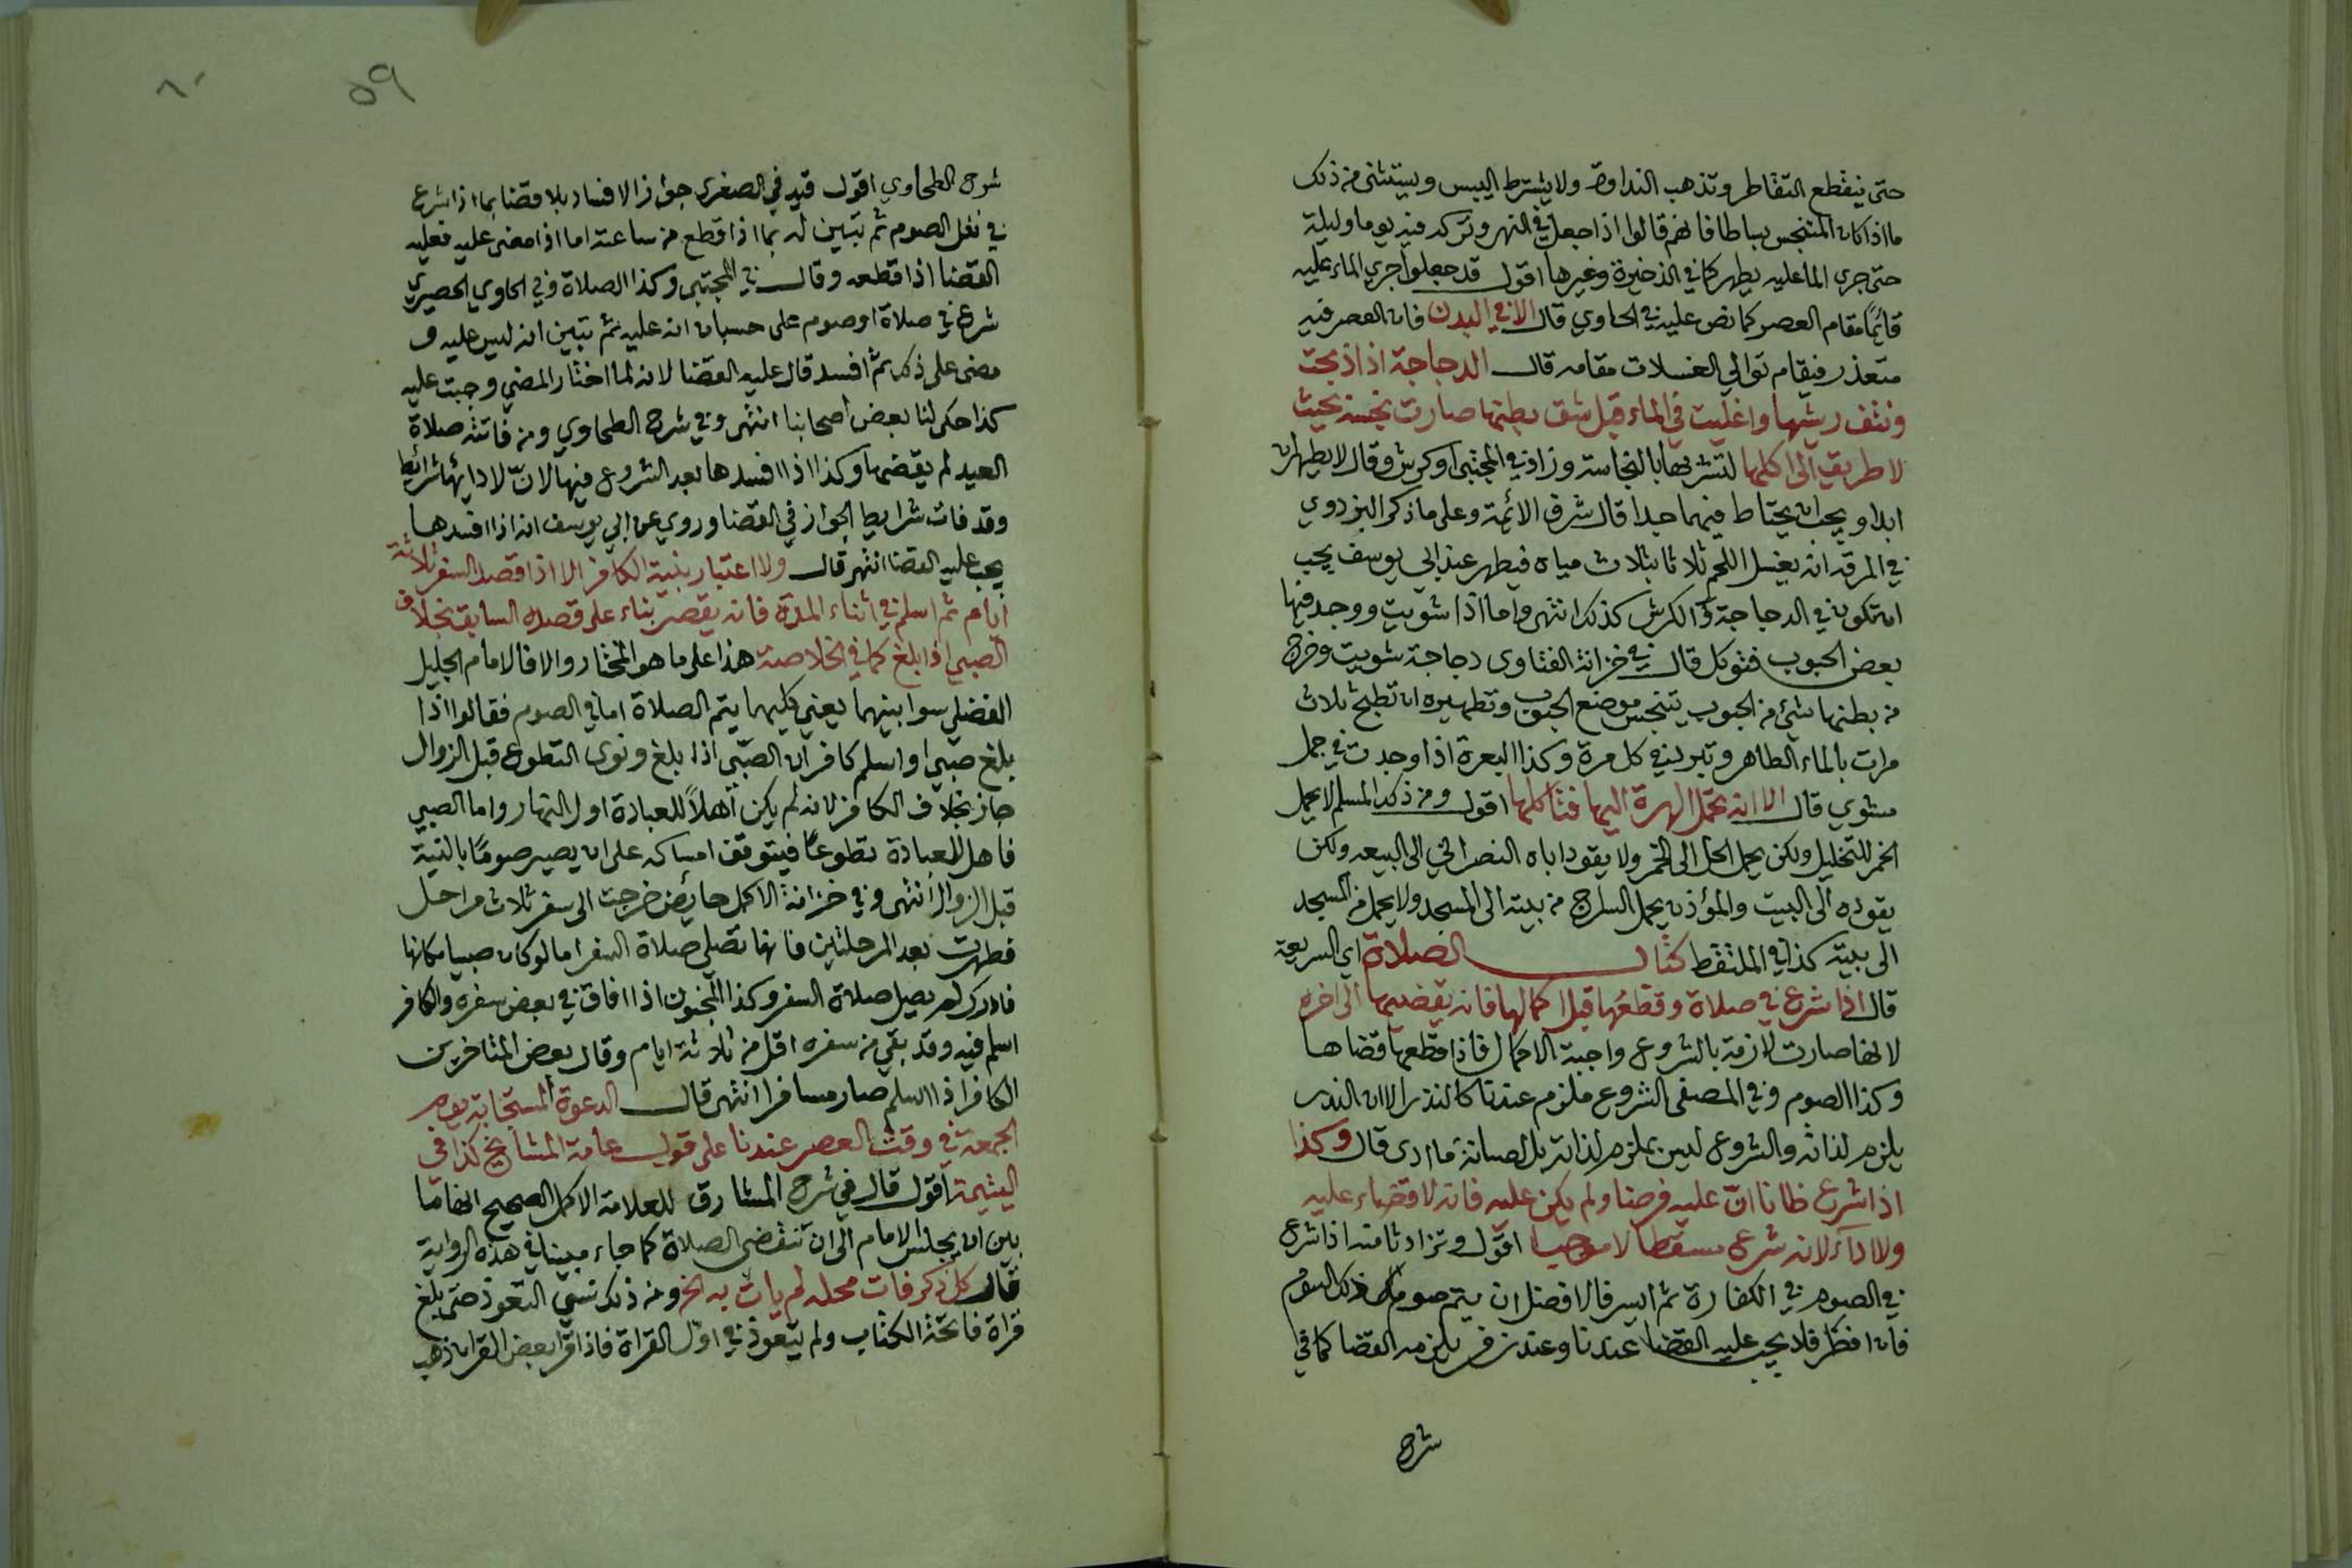 حتى ينقطع التقاطر وتذهب النداوة ولا يشترط اليبس ويستثنى من ذلك
ما اذا كان المتنجس بساطا فانهم قالوا اذا جعل في النهر وترك فيه يوما وليلة
حتى جرى الما عليه يطهر كما في الذخيرة وغيرها اقول قد جعلوا جري الماء عليه
قائما مقام العصر كما نص عليه في الحاوي قال الا في البدن فان العصر فيه
متعذر فيقام توالي الغسلات مقامه قال الدجاجة اذا ذبحت
ونتف ريشها واغليت في الماء قبل شق بطنها صارت نجسة بحيث
لا طريق الى اكلها لتشربها بالنجاسة وزاد في المجتبى او كرش وقال لا يطهران
ابدا ويجب ان يحتاط فيهما جدا قال شرف الائمة وعلى ما ذكر البزدوي
في المرقة انه يغسل اللحم ثلاثا بثلاث مياه فيطهر عند ابي يوسف يجب
ان تكون في الدجاجة والكرش كذلك انتهى واما اذا شويت ووجد فيها
بعض الحبوب فتوكل قال في خزانة الفتاوى دجاجة شويت وخرج
من بطنها شئ من الحبوب يتنجس موضع الحبوب وتطهيره ان تطبخ ثلاث
مرات بالماء الطاهر وتبرد في كل مرة وكذا البعرة اذا وجدت في جمل
مشوي قال الا ان تحمل الهرة اليها فتاكلها اقول ومن ذلك المسلم لا يحمل
الخمر للتخليل ولكن يحمل الخل الى الخمر ولا يقود اباه النصراني الى البيعه ولكن
يقوده الى البيت والمؤذن يحمل السراج من بيته الى المسجد ولا يحمل من المسجد
الى بيته كذا في الملتقط كتاب الصلاة اي الشريعة
قال اذا شرع في صلاة وقطعها قبل اكمالها فانه يقضيها الى اخره
لانها صارت لازمة بالشروع واجبة الاكمال فاذا قطعها قضاها
وكذا الصوم وفي المصفى الشروع ملزم عندنا كالنذر الا ان النذر
يلزم لذاته والشروع ليس بملزم لذاته بل لصيانة ما ادى قال وكذا
اذا شرع ظانا ان عليه فرضا ولم يكن عليه فانه لا قضاء عليه
ولا اداء لانه شرع مسقطا لا موجبا اقول وتزاد ثامنة اذا شرع
في الصوم في الكفارة ثم ايسر فالافضل ان يتم صوم ذلك اليوم
فان افطر فلا يجب عليه القضا عندنا وعند زفر يلزمه القضا كما في
شرح
٥٩
شرح الطحاوي اقول قيد في الصغرى جواز الافساد بلا قضا بما اذا شرع
في نفل الصوم ثم تبين له بما اذا قطع من ساعته اما اذا مضى عليه فعليه
القضا اذا قطعه وقال في المجتبى وكذا الصلاة وفي الحاوي الحصيري
شرع في صلاة او صوم على حسبان انه عليه ثم تبين انه ليس عليه و
مضى على ذلك ثم افسد قال عليه القضا لانه لما اختار المضي وجبت عليه
كذا حكى لنا بعض اصحابنا انتهى وفي شرح الطحاوي ومن فاتته صلاة
العيد لم يقضها وكذا اذا افسدها بعد الشروع فيها لان لادائها شرائط
وقد فات شرايط الجواز في القضا وروي عن ابي يوسف انه اذا افسدها
يجب عليه القضا انتهى قال ولا اعتبار بنية الكافر الا اذا قصد السفر ثلاثة
ايام ثم اسلم في اثناء المدة فانه يقصر بناء على قصده السابق بخلاف
الصبي اذا بلغ كما في الخلاصة هذا على ما هو المختار والا فالامام الجليل
الفضلي سوا بينهما يعني كليهما يتم الصلاة اما في الصوم فقالوا اذا
بلغ صبي او اسلم كافر ان الصبي اذا بلغ ونوى التطوع قبل الزوال
جاز بخلاف الكافر لانه لم يكن اهلا للعبادة اول النهار واما الصبي
فاهل للعبادة تطوعا فيتوقف امساكه على ان يصير صوما بالنية
قبل الزوال انتهى وفي خزانة الاكمل حايض خرجت الى سفر ثلاث مراحل
فطهرت بعد المرحلتين فانها تصلي صلاة السفر اما لو كان صبيا مكانها
فادرك لم يصل صلاة السفر وكذا المجنون اذا افاق في بعض سفره والكافر
اسلم فيه وقد بقي من سفره اقل من ثلاثة ايام وقال بعض المتاخرين
الكافر اذا اسلم صار مسافرا انتهى قال الدعوة المستجابة يوم
الجمعة في وقت العصر عندنا على قول عامة المشايخ كذا في
اليتيمة اقول قال في شرح المشارق للعلامة الاكمل الصحيح انها ما
بين ان يجلس الامام الى ان تنقضي الصلاة كما جاء مبينا في هذه الرواية
قال كل ذكر فات محله لم يات به الخ ومن ذلك نسي التعوذ حتى بلغ
قراة فاتحة الكتاب ولم يتعوذ في اول القراة فاذا قرا بعض القران ذهب